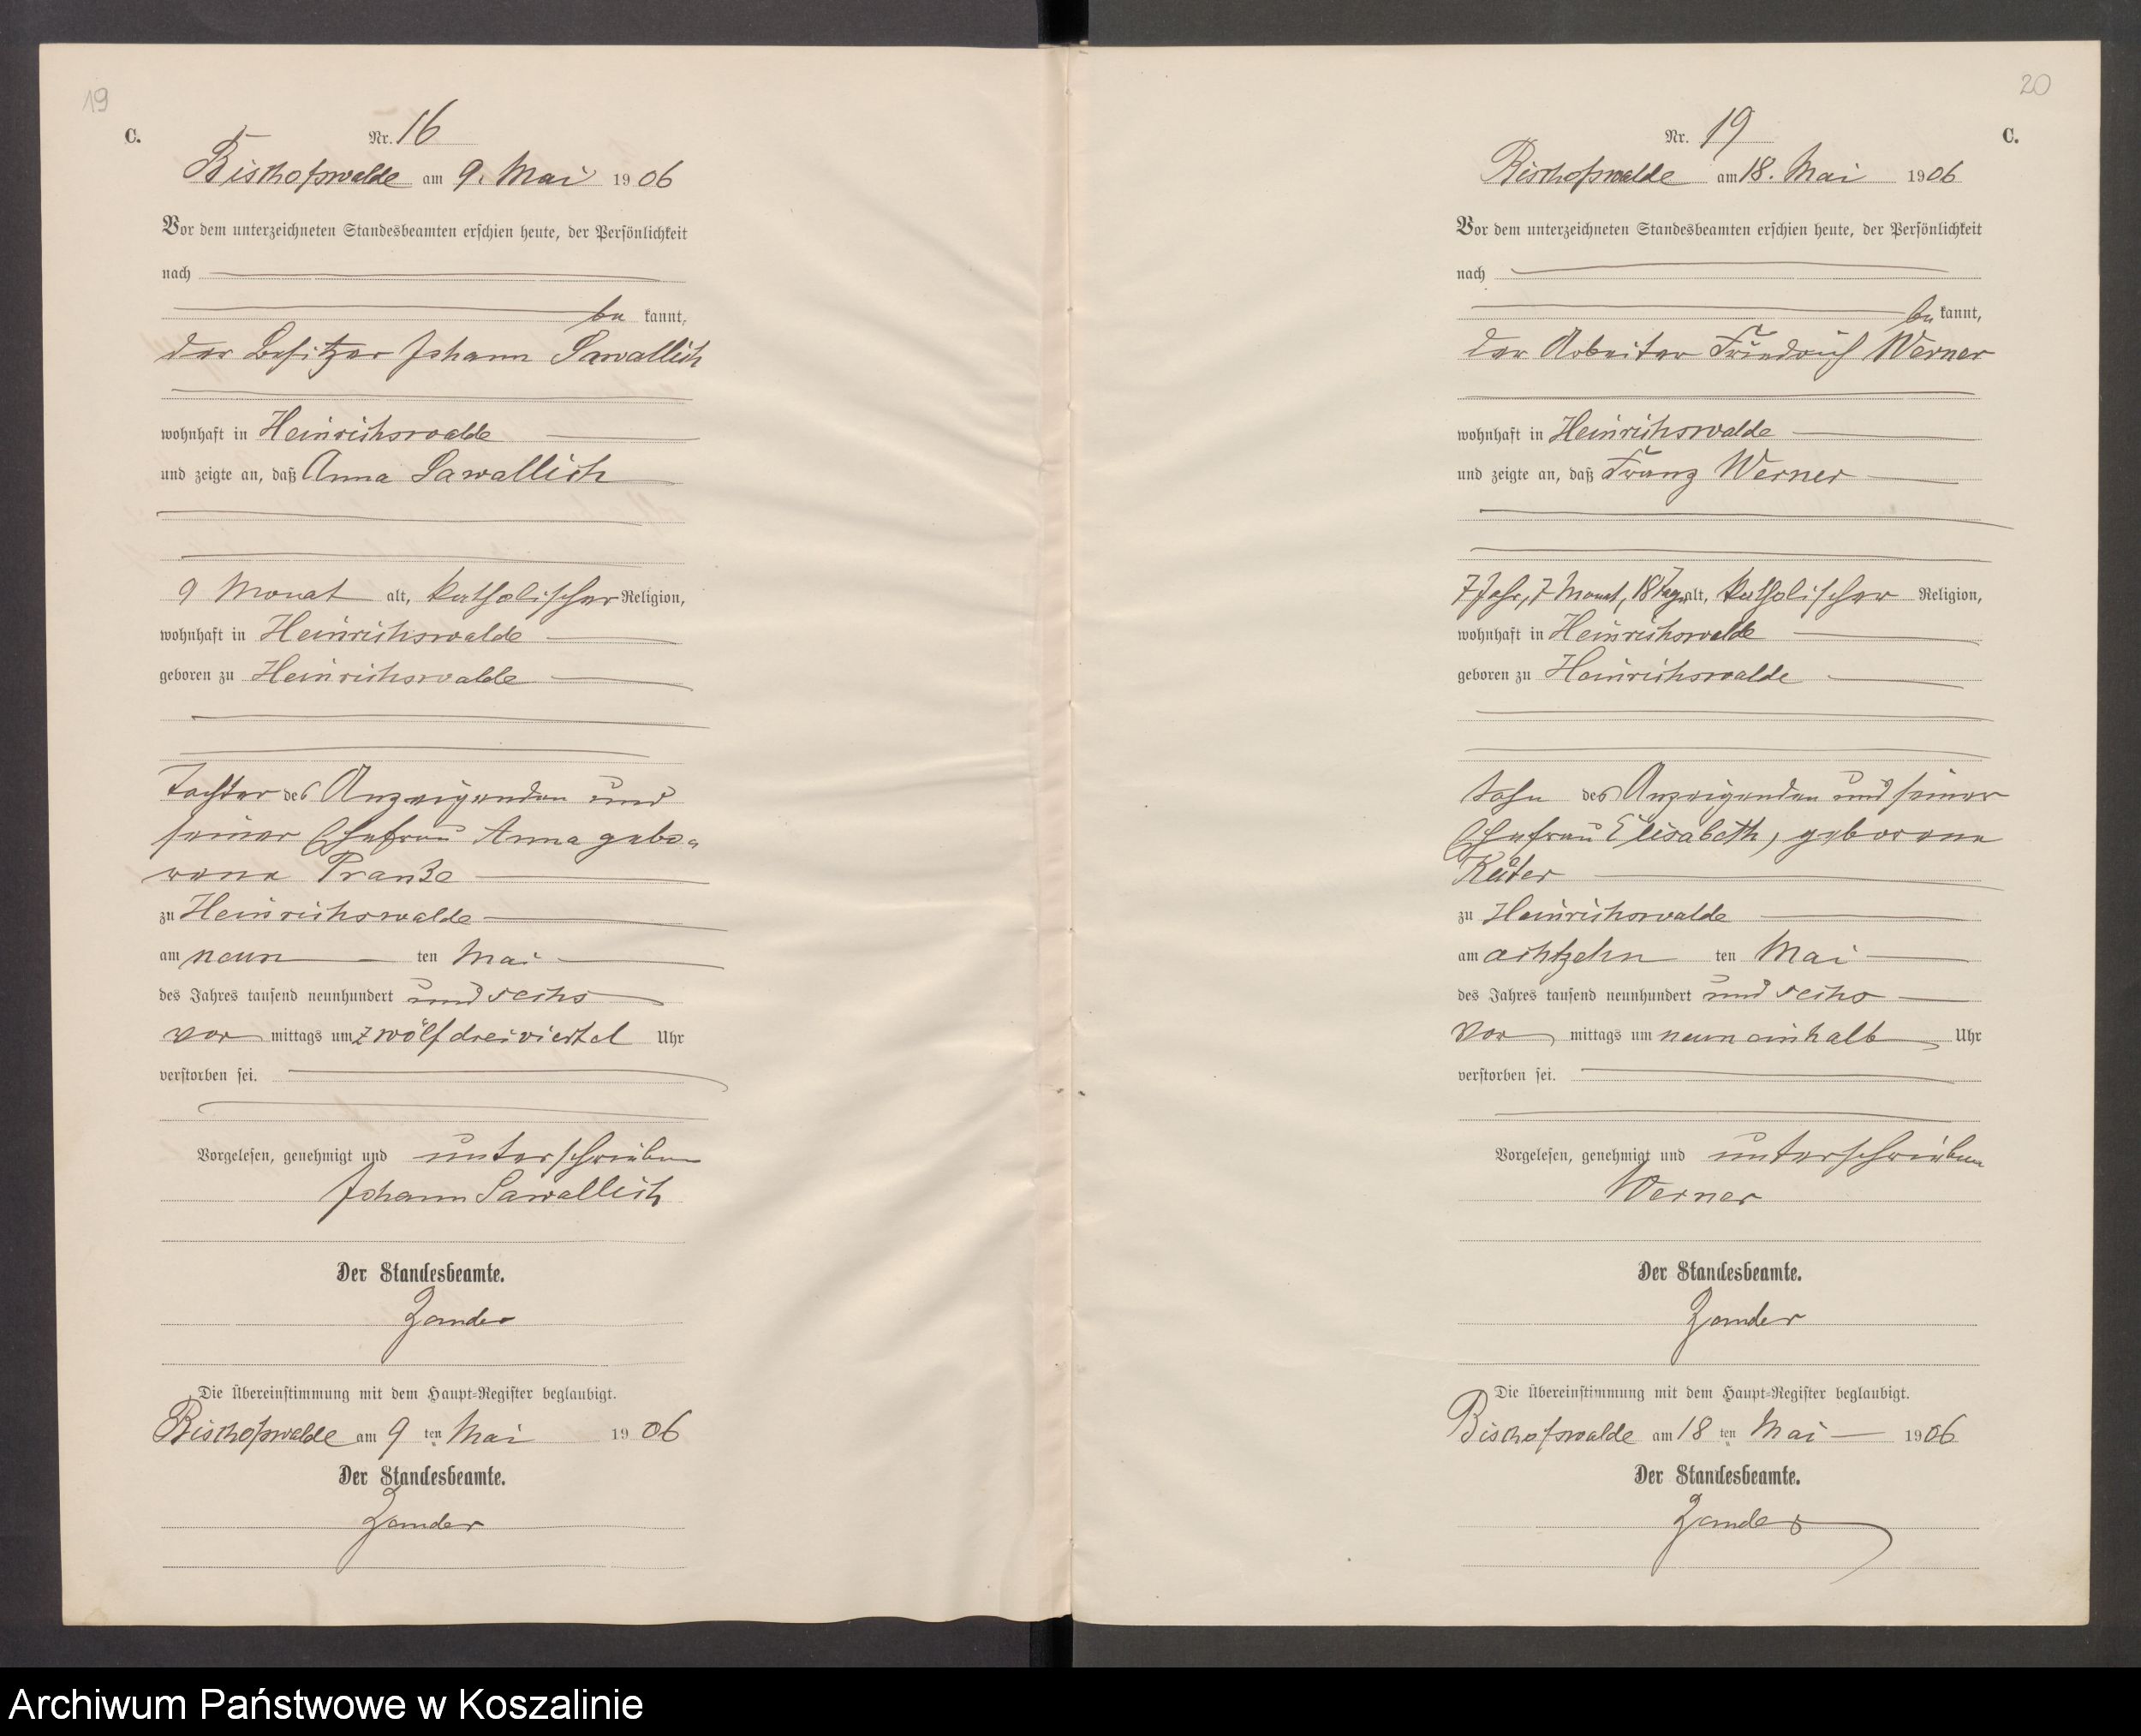 19
C.
Nr. 16
Bischofswalde am 9. Mai 1906
Vor dem unterzeichneten Standesbeamten erschien heute, der Persönlichkeit
nach
be kannt,
der Besitzer Johann Sawallich
wohnhaft in Heinrichswalde
und zeigte an, daß Anna Sawallich
9 Monat alt, katholischer Religion,
wohnhaft in Heinrichswalde
geboren zu Heinrichswalde
Tochter des Anzeigenden und
seiner Ehefrau Anna gebo-
rene Pranke
zu Heinrichswalde
am neun ten Mai
des Jahres tausend neunhundert und sechs
vor mittags um zwölf dreiviertel Uhr
verstorben sei.
Vorgelesen, genehmigt und unterschrieben
Johann Sawallich
Der Standesbeamte.
Zander
Die Übereinstimmung mit dem Haupt-Register beglaubigt.
Bischofswalde am 9 ten Mai 1906
Der Standesbeamte.
Zander
20
C.
Nr. 19
Bischofswalde am 18. Mai 1906
Vor dem unterzeichneten Standesbeamten erschien heute, der Persönlichkeit
nach
be kannt,
der Arbeiter Friedrich Werner
wohnhaft in Heinrichswalde
und zeigte an, daß Franz Werner
7 Jahr, 7 Monat, 18 Tage alt, katholischer Religion,
wohnhaft in Heinrichswalde
geboren zu Heinrichswalde
Sohn des Anzeigenden und seiner
Ehefrau Elisabeth, geborene
zu Heinrichswalde
am achtzehn ten Mai
des Jahres tausend neunhundert und sechs
vor mittags um neun einhalb Uhr
verstorben sei.
Vorgelesen, genehmigt und unterschrieben
Werner
Der Standesbeamte.
Zander
Die Übereinstimmung mit dem Haupt-Register beglaubigt.
Bischofswalde am 18 ten Mai 1906
Der Standesbeamte.
Zander
Archiwum Państwowe w Koszalinie